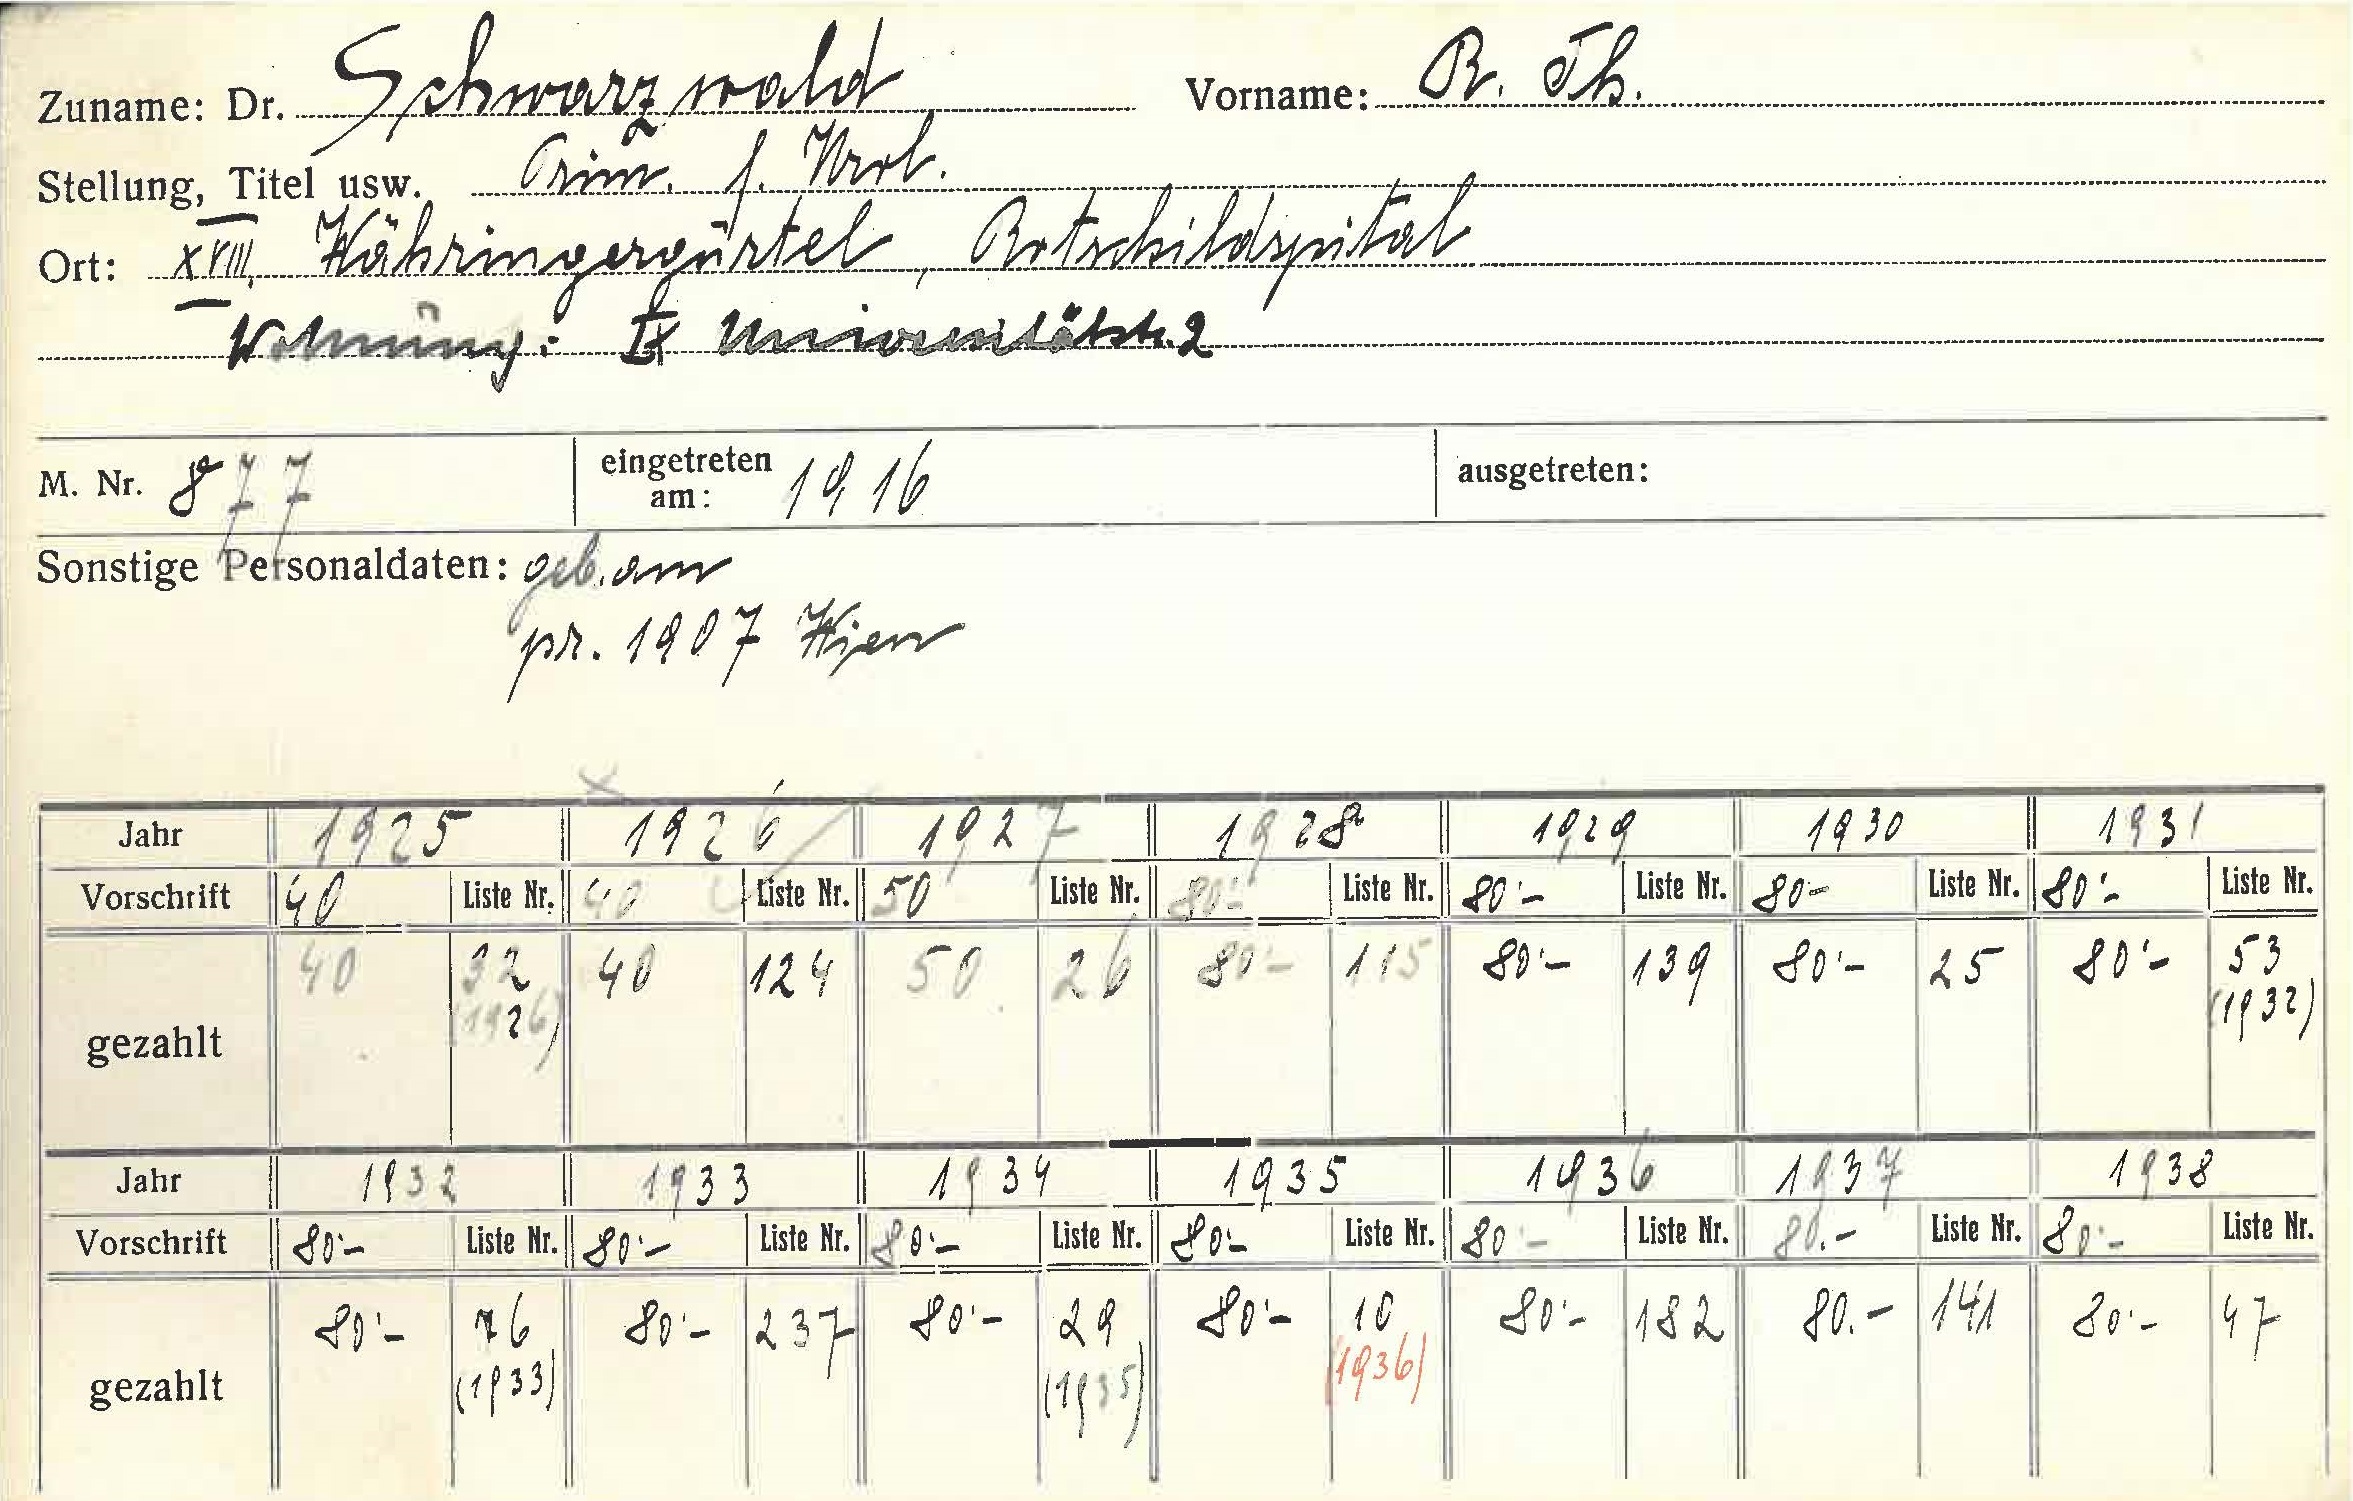 Zuname: Dr. Schwarzwald Vorname: R. Th.
Stellung, Titel usw. Prim. f. Urol.
Ort: XVIII, Währingergürtel, Rotschildspital
Wohnung: IX Universitätstr. 2
M. Nr. 877 eingetreten am: 1916 ausgetreten:
Sonstige Personaldaten: geb. am
pr. 1907 Wien
Jahr 1925 1926 1927 1928 1929 1930 1931
Vorschrift 40 Liste Nr. 40 Liste Nr. 50 Liste Nr. 80'- Liste Nr. 80'- Liste Nr. 80- Liste Nr. 80'- Liste Nr.
gezahlt 40 32 (1926) 40 124 50 26 80'- 115 80'- 139 80'- 25 80'- 53 (1932)
Jahr 1932 1933 1934 1935 1936 1937 1938
Vorschrift 80'- Liste Nr. 80'- Liste Nr. 80'- Liste Nr. 80'- Liste Nr. 80'- Liste Nr. 80.- Liste Nr. 80'- Liste Nr.
gezahlt 80'- 76 (1933) 80'- 237 80'- 29 (1935) 80'- 10 (1936) 80'- 182 80.- 141 80'- 47